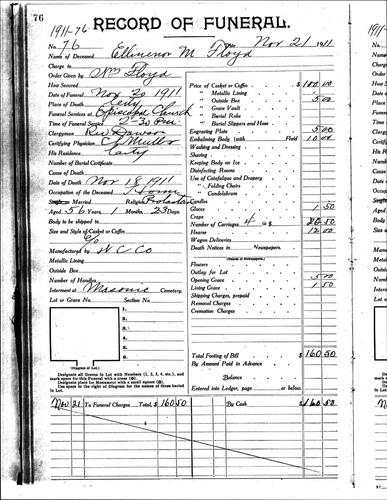 76
1911-76
RECORD OF FUNERAL.
No. 76 Date Nov 21 1911
Name of Deceased Ellinenor M Floyd
Charge to
Order Given by Wm Floyd
Host Secured
Date of Funeral Nov 20 1911
Place of Death City
Funeral Services at Episcopal Church
Time of Funeral Service 2-30 PM
Clergyman Rev Dawson
Certifying Physician Muller
His Residence City
Number of Burial Certificate
Cause of Death
Date of Death Nov 18 1911
Occupation of the Deceased Home
Single or Married Religion Protestant
Aged 56 Years, 1 Months, 23 Days
Body to be shipped to
Size and Style of Casket or Coffin
Manufactured by N C Co
Metallic Lining
Outside Box
Number of Handles
Interment at Masonic Cemetery.
Lot or Grave No. Section No.
1.
2.
3.
4.
5.
6.
(Diagram of Lot.)
Designate all Graves in Lot with Numbers (1, 2, 3, 4, etc.), and
mark space for this Funeral with a cross (⊗).
Designate place for Monument with a small square (□).
Use space to the right of Diagram for the names of those buried
in Lot.
Price of Casket or Coffin $ 100 00
" Metallic Lining
" Outside Box 5 00
" Grave Vault
" Burial Robe
" Burial Slippers and Hose
Engraving Plate 5 00
Embalming Body (with Fluid 10 00
Washing and Dressing
Shaving
Keeping Body on Ice
Disinfecting Rooms
Use of Catafalque and Drapery
" Folding Chairs
" Candelabrum
Candles
Gloves 1 50
Crape
Number of Carriages 4 @ $ 20 50
Hearse 12 00
Wagon Deliveries
Death Notices in Newspapers.
(Names of Newspapers.)
Flowers
Outlay for Lot
Opening Grave 5 00
Lining Grave 1 50
Shipping Charges, prepaid
Removal Charges
Cremation Charges
Total Footing of Bill $ 160 50
By Amount Paid in Advance
Balance
Entered into Ledger, page or below.
Nov 21 To Funeral Charges Total, $ 160 50 By Cash $ 160 50